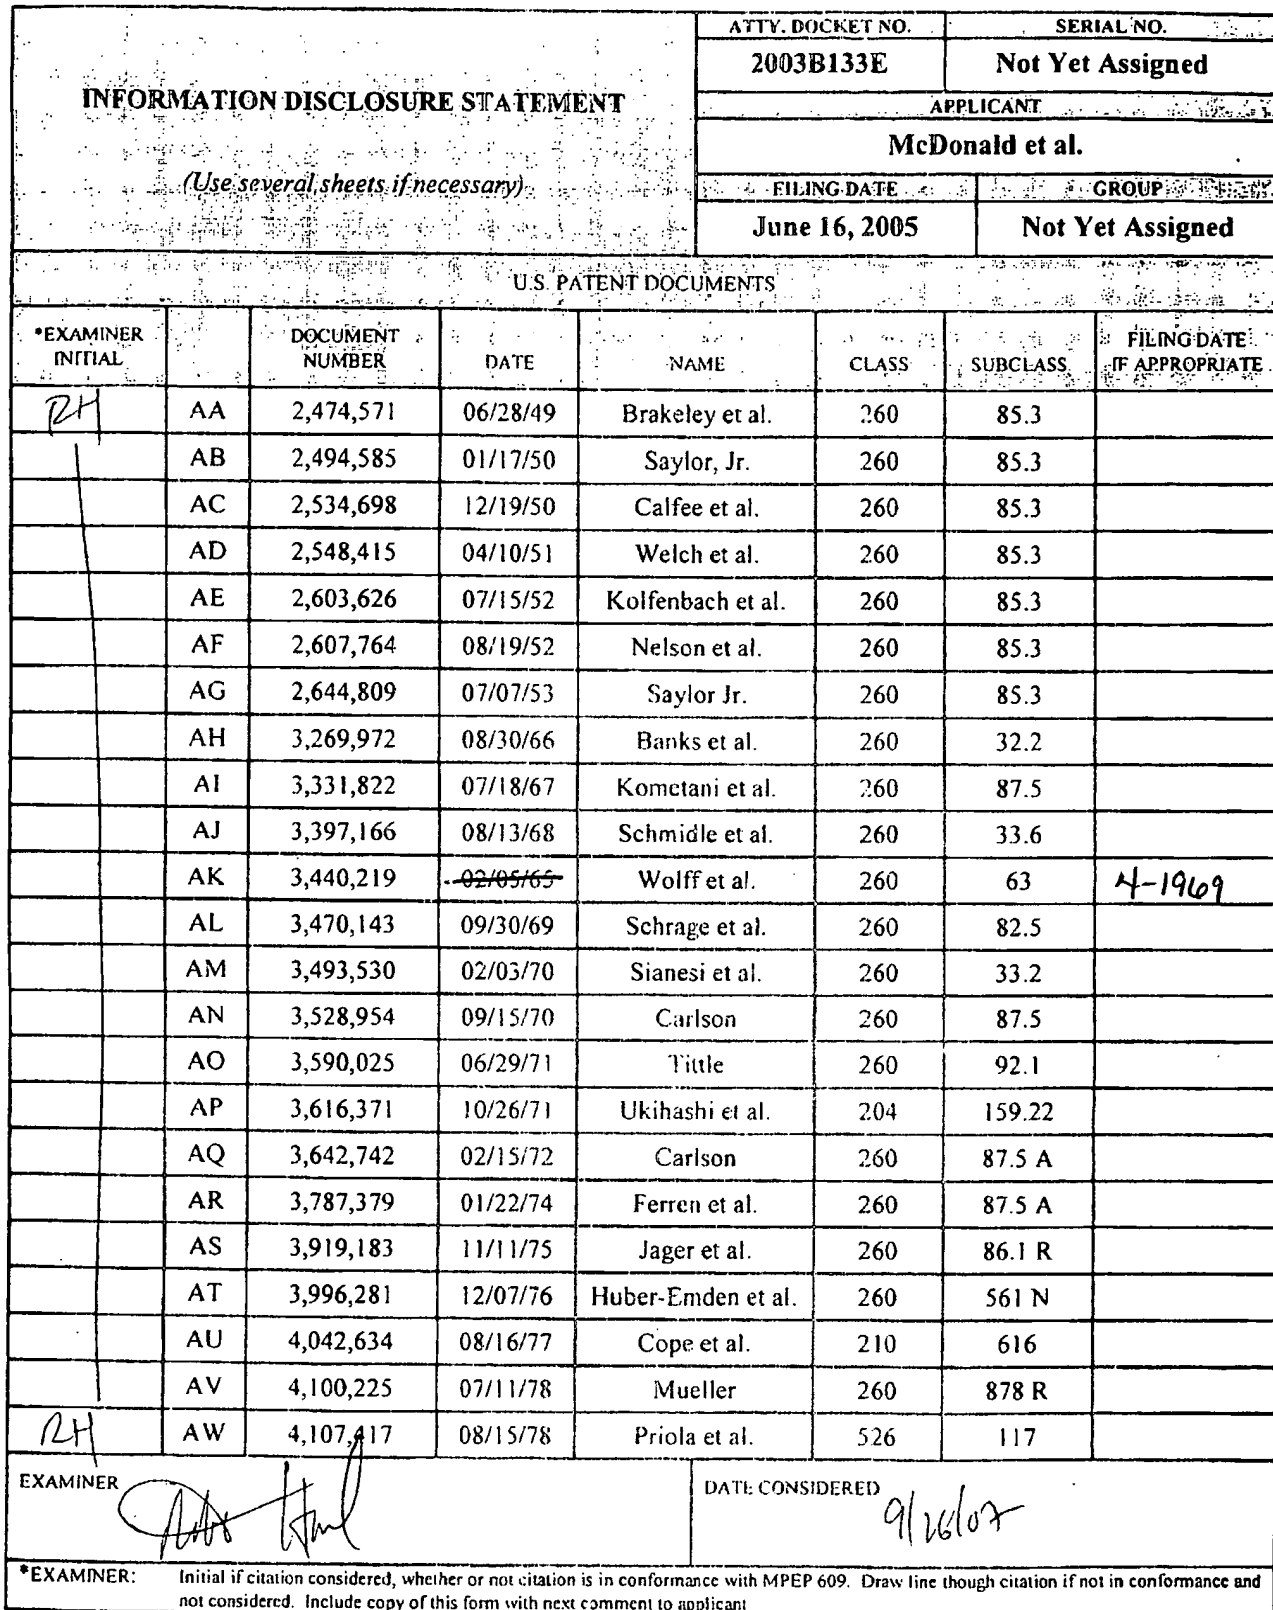 ATTY. DOCKET NO. SERIAL NO.
2003B133E Not Yet Assigned
INFORMATION DISCLOSURE STATEMENT
APPLICANT
McDonald et al.
(Use several sheets if necessary)
FILING DATE GROUP
June 16, 2005 Not Yet Assigned
U.S. PATENT DOCUMENTS
*EXAMINER INITIAL DOCUMENT NUMBER DATE NAME CLASS SUBCLASS FILING DATE IF APPROPRIATE
RH AA 2,474,571 06/28/49 Brakeley et al. 260 85.3
AB 2,494,585 01/17/50 Saylor, Jr. 260 85.3
AC 2,534,698 12/19/50 Calfee et al. 260 85.3
AD 2,548,415 04/10/51 Welch et al. 260 85.3
AE 2,603,626 07/15/52 Kolfenbach et al. 260 85.3
AF 2,607,764 08/19/52 Nelson et al. 260 85.3
AG 2,644,809 07/07/53 Saylor Jr. 260 85.3
AH 3,269,972 08/30/66 Banks et al. 260 32.2
AI 3,331,822 07/18/67 Kometani et al. 260 87.5
AJ 3,397,166 08/13/68 Schmidle et al. 260 33.6
AK 3,440,219 02/05/65 Wolff et al. 260 63 4-1969
AL 3,470,143 09/30/69 Schrage et al. 260 82.5
AM 3,493,530 02/03/70 Sianesi et al. 260 33.2
AN 3,528,954 09/15/70 Carlson 260 87.5
AO 3,590,025 06/29/71 Tittle 260 92.1
AP 3,616,371 10/26/71 Ukihashi et al. 204 159.22
AQ 3,642,742 02/15/72 Carlson 260 87.5 A
AR 3,787,379 01/22/74 Ferren et al. 260 87.5 A
AS 3,919,183 11/11/75 Jager et al. 260 86.1 R
AT 3,996,281 12/07/76 Huber-Emden et al. 260 561 N
AU 4,042,634 08/16/77 Cope et al. 210 616
AV 4,100,225 07/11/78 Mueller 260 878 R
RH AW 4,107,417 08/15/78 Priola et al. 526 117
EXAMINER DATE CONSIDERED 9/26/07
*EXAMINER: Initial if citation considered, whether or not citation is in conformance with MPEP 609. Draw line though citation if not in conformance and
not considered. Include copy of this form with next comment to applicant